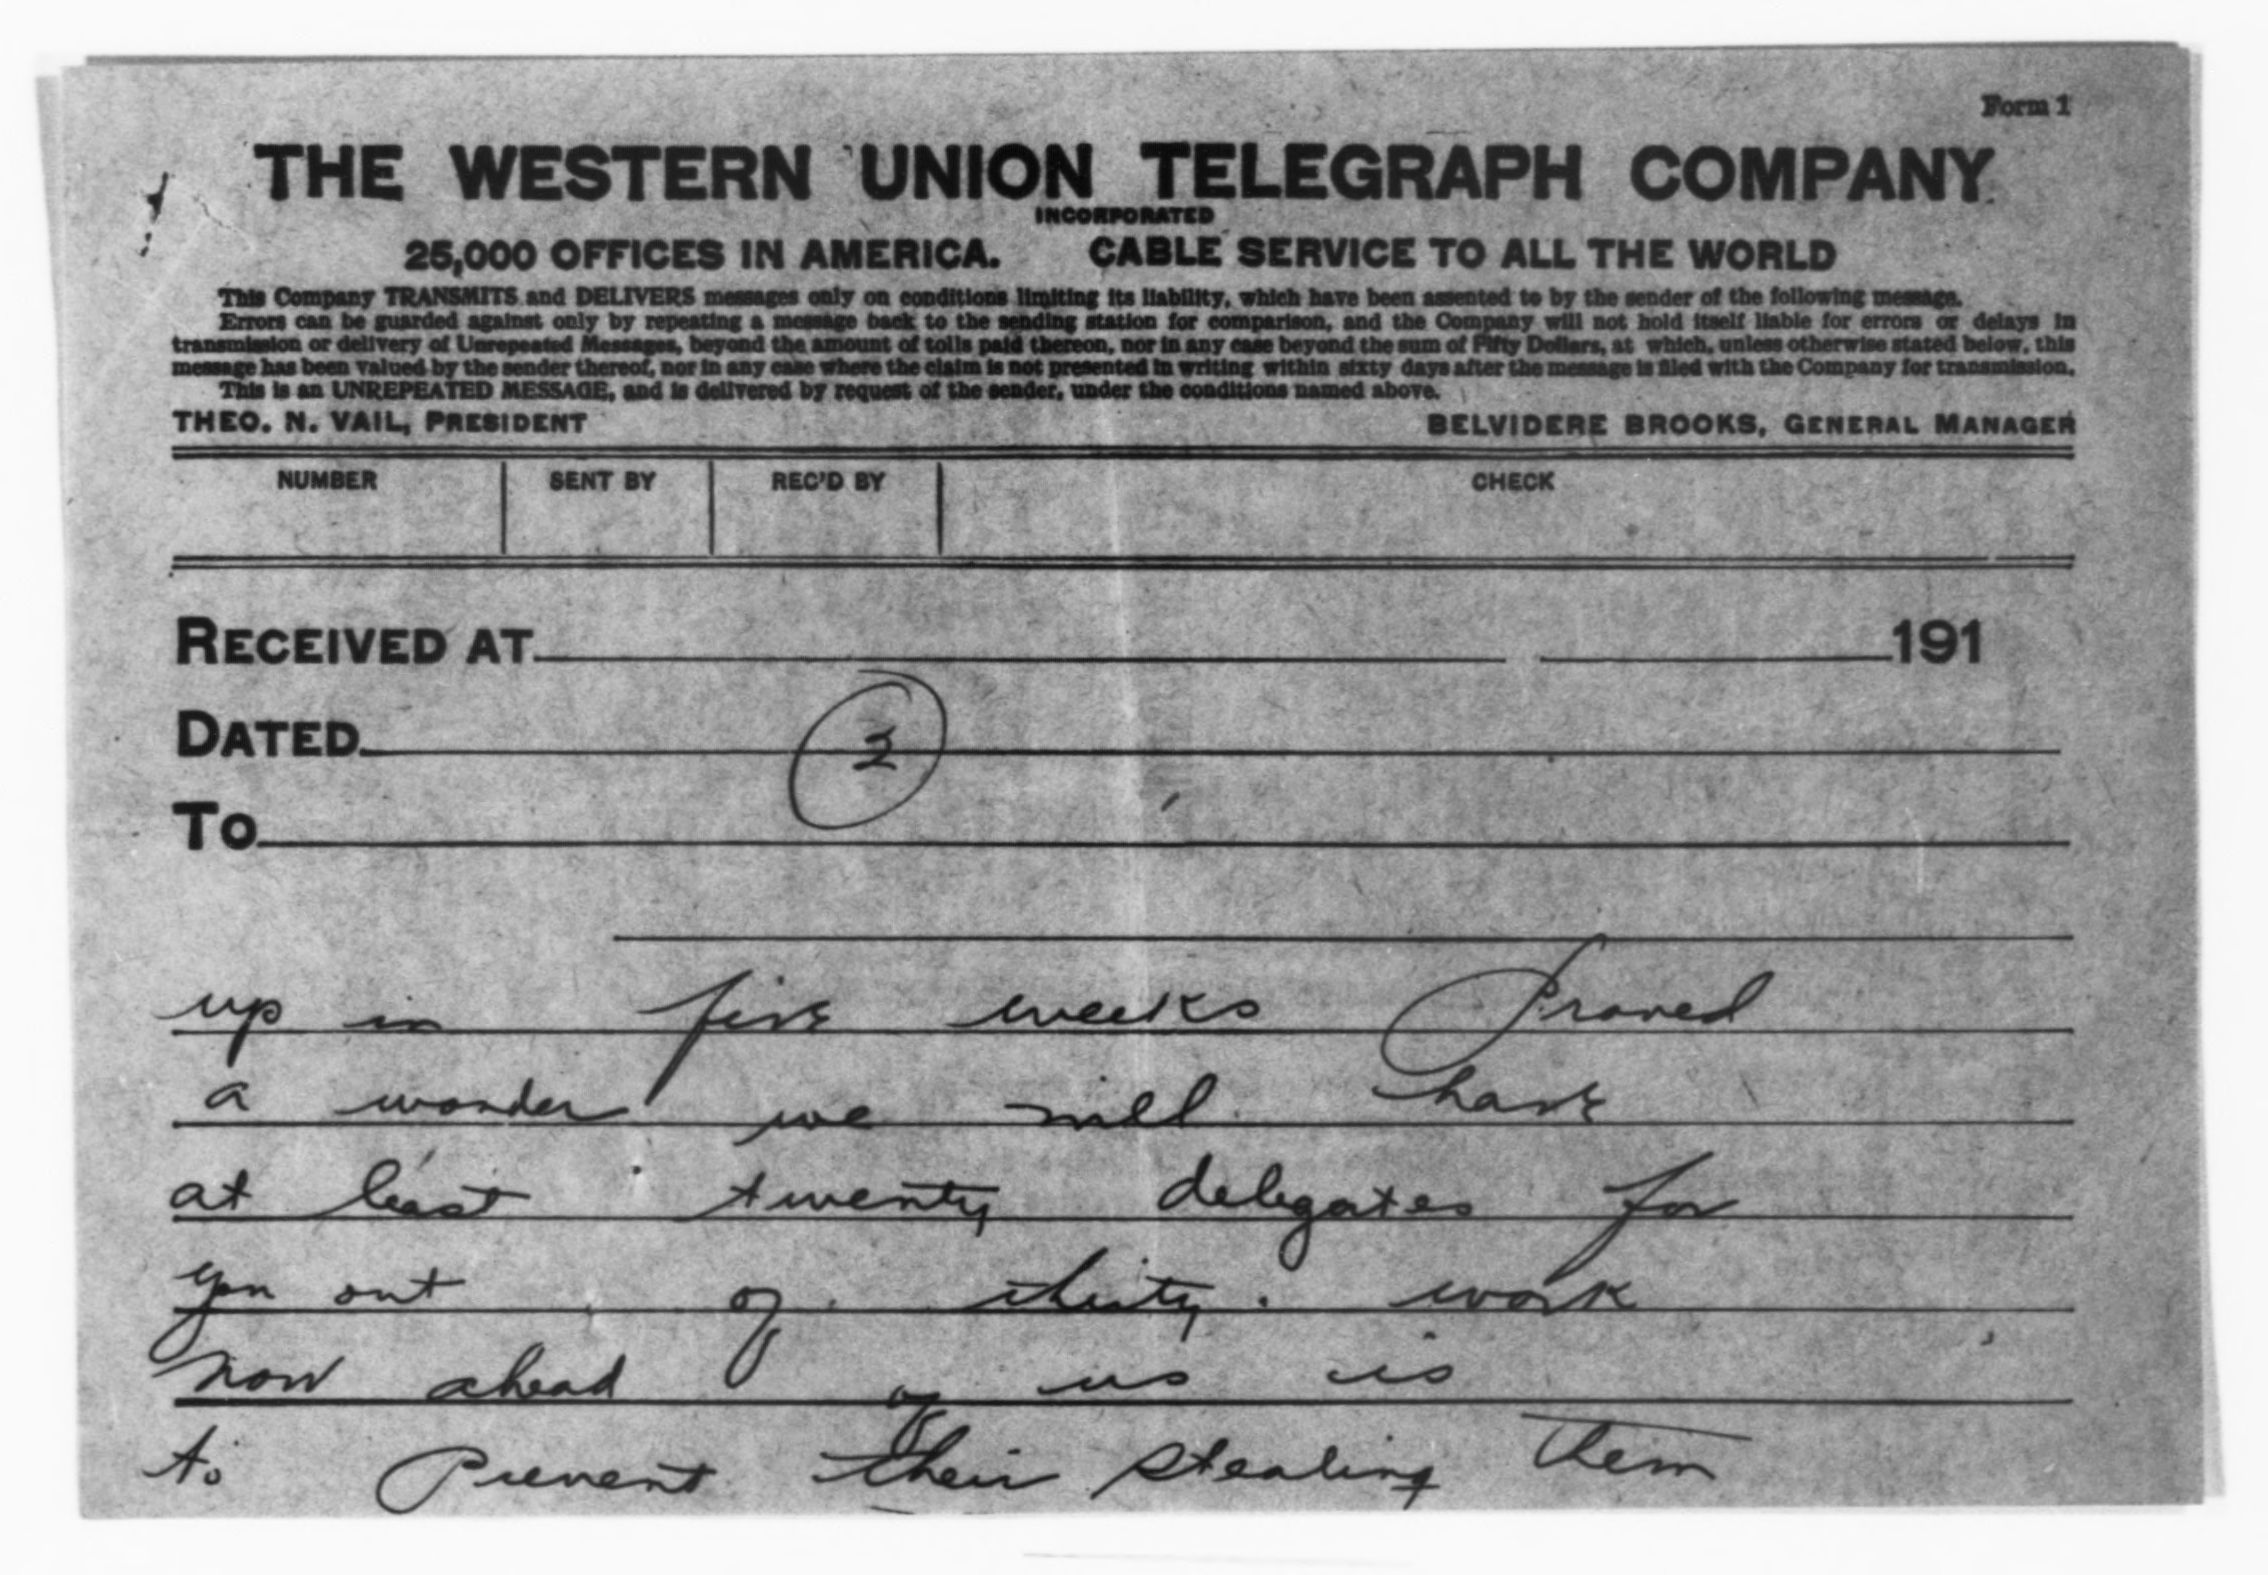 Form 1
THE WESTERN UNION TELEGRAPH COMPANY
INCORPORATED
25,000 OFFICES IN AMERICA. CABLE SERVICE TO ALL THE WORLD
This Company TRANSMITS and DELIVERS messages only on conditions limiting its liability, which have been assented to by the sender of the following message.
Errors can be guarded against only by repeating a message back to the sending station for comparison, and the Company will not hold itself liable for errors or delays in
transmission or delivery of Unrepeated Messages, beyond the amount of tolls paid thereon, nor in any case beyond the sum of Fifty Dollars, at which, unless otherwise stated below, this
message has been valued by the sender thereof, nor in any case where the claim is not presented in writing within sixty days after the message is filed with the Company for transmission.
This is an UNREPEATED MESSAGE, and is delivered by request of the sender, under the conditions named above.
THEO. N. VAIL, PRESIDENT BELVIDERE BROOKS, GENERAL MANAGER
NUMBER SENT BY REC'D BY CHECK
RECEIVED AT 191
DATED
2
TO
up in five weeks Proved
a wonder we will have
at least twenty delegates for
you out of thirty. work
now ahead of us is
to Prevent their stealing them